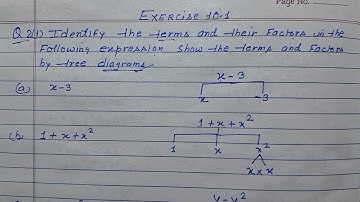 Page No.
EXERCISE 10.1
Q2(i) Identify the terms and their Factors in the
Following expression show the terms and Factors
by tree diagrams.
(a) x-3
x-3
x -3
(b) 1+x+x²
1+x+x²
1 x x²
x x x
y-y²